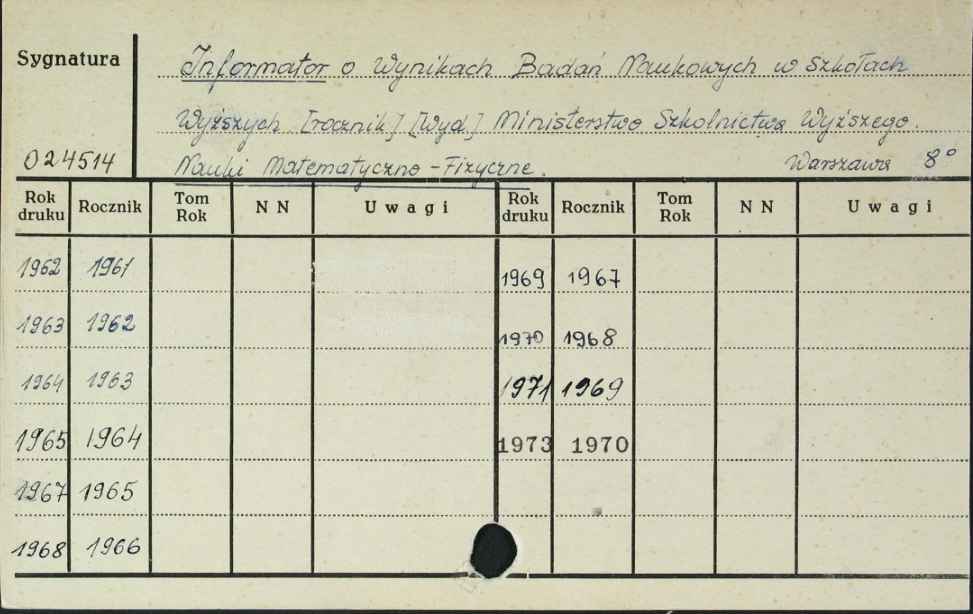 Sygnatura
Informator o Wynikach Badań Naukowych w Szkołach
Wyższych [rocznik] [Wyd.] Ministerstwo Szkolnictwa Wyższego.
024514 Nauki Matematyczno-Fizyczne. Warszawa 8°
Rok druku Rocznik Tom Rok N N Uwagi Rok druku Rocznik Tom Rok N N Uwagi
1962 1961 1969 1967
1963 1962 1970 1968
1964 1963 1971 1969
1965 1964 1973 1970
1967 1965
1968 1966